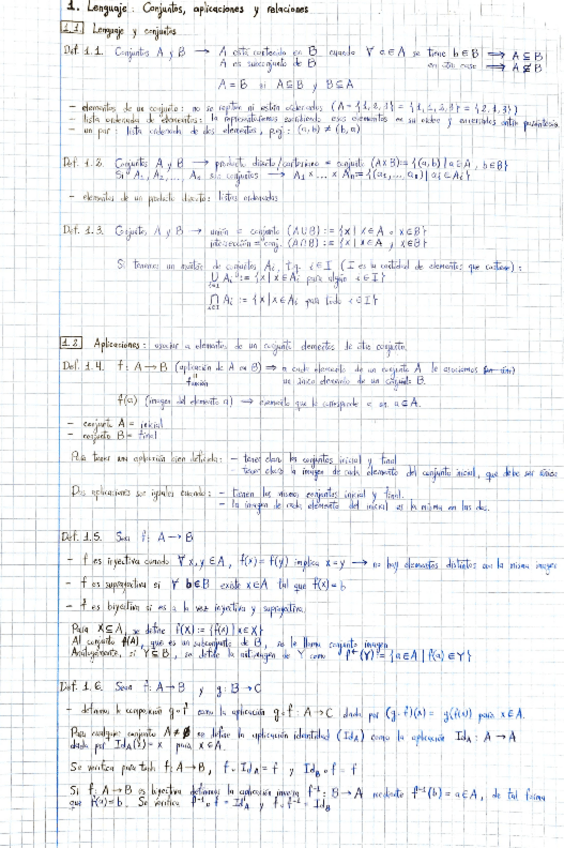 1. Lenguaje: Conjuntos, aplicaciones y relaciones
1.1 Lenguaje y conjuntos
Def. 1.1. Conjuntos A y B → A está contenido en B cuando ∀ a∈A se tiene b∈B ⇒ A⊆B
A es subconjunto de B en otro caso ⇒ A⊈B
A = B si A⊆B y B⊆A
- elementos de un conjunto: no se repiten ni están ordenados (A = {1,2,3} = {1,1,2,3} = {2,1,3})
- lista ordenada de elementos: la representaremos escribiendo esos elementos en su orden y entre paréntesis
- un par: lista ordenada de dos elementos, p.ej: (a,b) ≠ (b,a)
Def. 1.2. Conjuntos A y B → producto directo/cartesiano = conjunto (A×B) := {(a,b) | a∈A, b∈B}
Si A₁, A₂, ... Aₙ son conjuntos → A₁ × ... × Aₙ = {(a₁, ... aₙ) | aᵢ∈Aᵢ}
- elementos de un producto directo: listas ordenadas
Def. 1.3. Conjuntos A y B → unión = conjunto (A∪B) := {x | x∈A o x∈B}
intersección = conj. (A∩B) := {x | x∈A y x∈B}
Si tenemos un de conjuntos Aᵢ, t.q. i∈I (I es la cantidad de elementos que contiene):
⋃ Aᵢ := {x | x∈Aᵢ para algún i∈I}
⋂ Aᵢ := {x | x∈Aᵢ para todo i∈I}
1.2 Aplicaciones: asociar a elementos de un conjunto elementos de otro conjunto.
Def. 1.4. f: A→B (aplicación de A en B) ⇒ a cada elemento de un conjunto A le asociamos
función un único elemento de un conjunto B.
f(a) (imagen del elemento a) → elemento que le corresponde a un a∈A.
- conjunto A = inicial
- conjunto B = final
Para tener una aplicación bien definida: - tener claro los conjuntos inicial y final
- tener claro la imagen de cada elemento del conjunto inicial, que debe ser única
Dos aplicaciones son iguales cuando: - tienen los mismos conjuntos inicial y final.
- la imagen de cada elemento del inicial es la misma en las dos.
Def. 1.5. Sea f: A→B
- f es inyectiva cuando ∀ x,y∈A, f(x)=f(y) implica x=y → no hay elementos distintos con la misma imagen
- f es suprayectiva si ∀ b∈B existe x∈A tal que f(x)=b
- f es biyectiva si es a la vez inyectiva y suprayectiva.
Para X⊆A, se define f(X) := {f(x) | x∈X}
Al conjunto f(A), que es un subconjunto de B, se le llama conjunto imagen
Análogamente, si Y⊆B, se define la antiimagen de Y como f⁻¹(Y) := {a∈A | f(a)∈Y}
Def. 1.6. Sean f: A→B y g: B→C
- definimos la composición g∘f como la aplicación g∘f: A→C dada por (g∘f)(x) = g(f(x)) para x∈A.
Para cualquier conjunto A≠∅ se define la aplicación identidad (Id_A) como la aplicación Id_A: A→A
dada por Id_A(x) = x para x∈A.
Se verifica para toda f: A→B, f∘Id_A = f y Id_B∘f = f
Si f: A→B es biyectiva definimos la aplicación inversa f⁻¹: B→A mediante f⁻¹(b) = a∈A, de tal forma
que f(a)=b. Se verifica f⁻¹∘f = Id_A y f∘f⁻¹ = Id_B